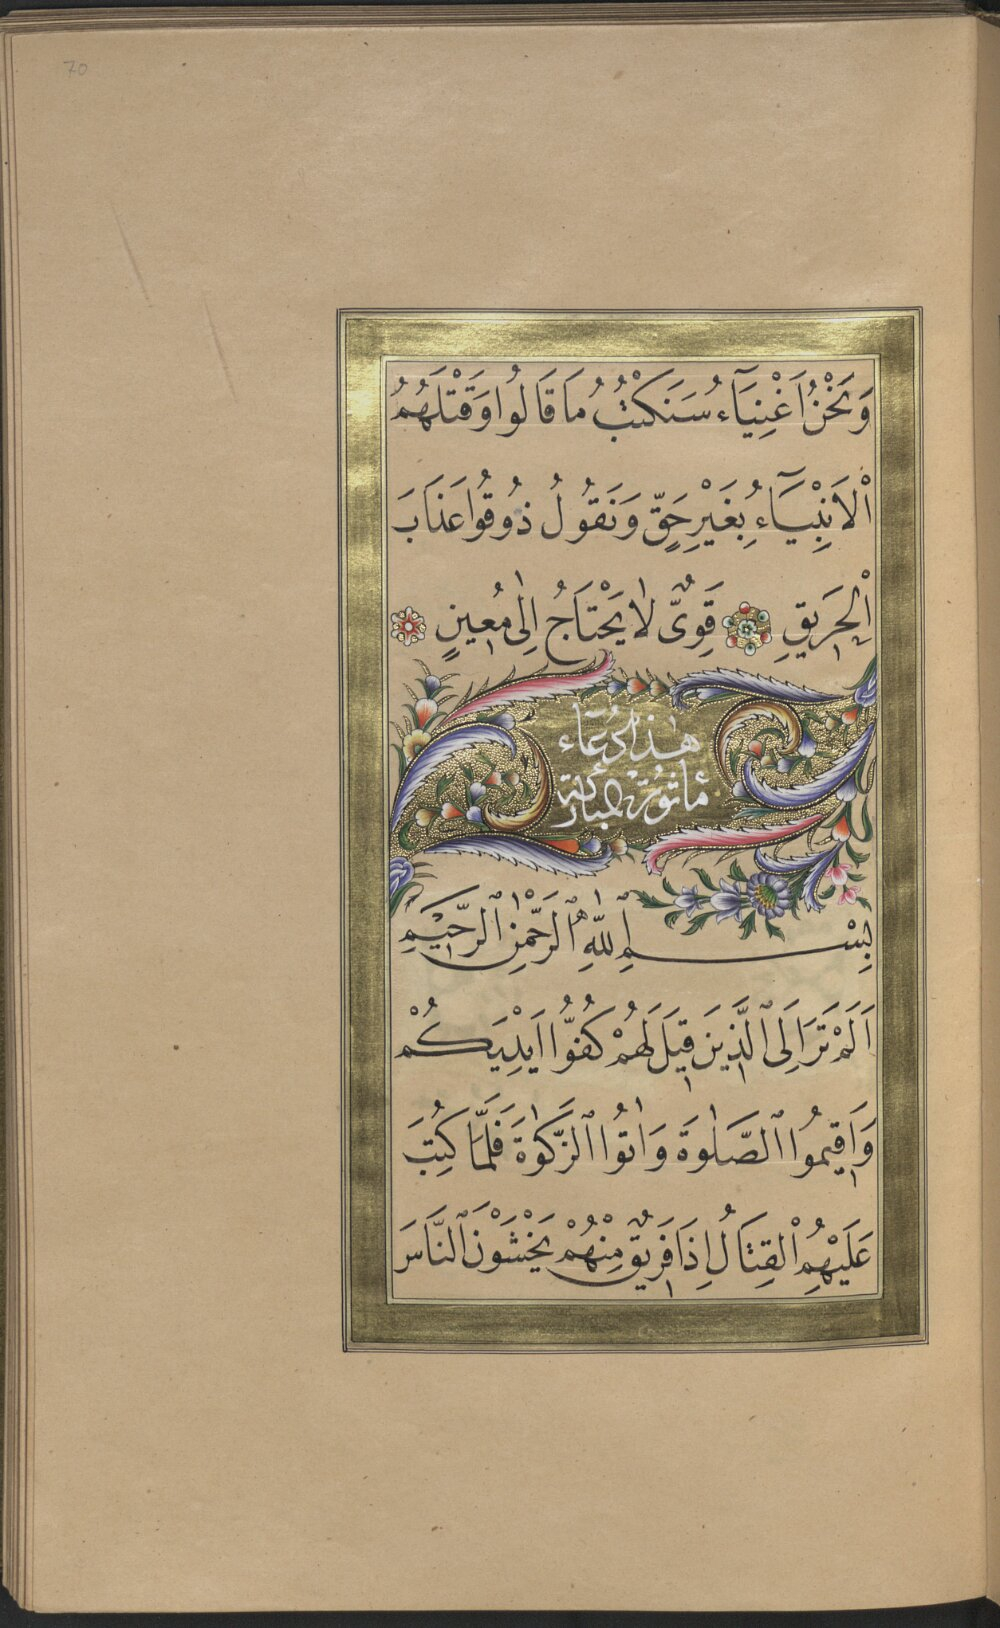 70
وَنَحْنُ اَغْنِيَآءُ سَنَكْتُبُ مَا قَالُوا وَقَتْلَهُمُ
الْاَنْبِيَآءَ بِغَيْرِ حَقٍّ وَنَقُولُ ذُوقُوا عَذَابَ
الْحَرِيقِ قَوِىٌّ لَا يَحْتَاجُ اِلٰى مُعِينٍ
هٰذَا دُعَاء
مأثورة المباركة
بِسْمِ اللّٰهِ الرَّحْمٰنِ الرَّحِيمِ
اَلَمْ تَرَ اِلَى الَّذِينَ قِيلَ لَهُمْ كُفُّوا اَيْدِيَكُمْ
وَاَقِيمُوا الصَّلٰوةَ وَاٰتُوا الزَّكٰوةَ فَلَمَّا كُتِبَ
عَلَيْهِمُ الْقِتَالُ اِذَا فَرِيقٌ مِنْهُمْ يَخْشَوْنَ النَّاسَ